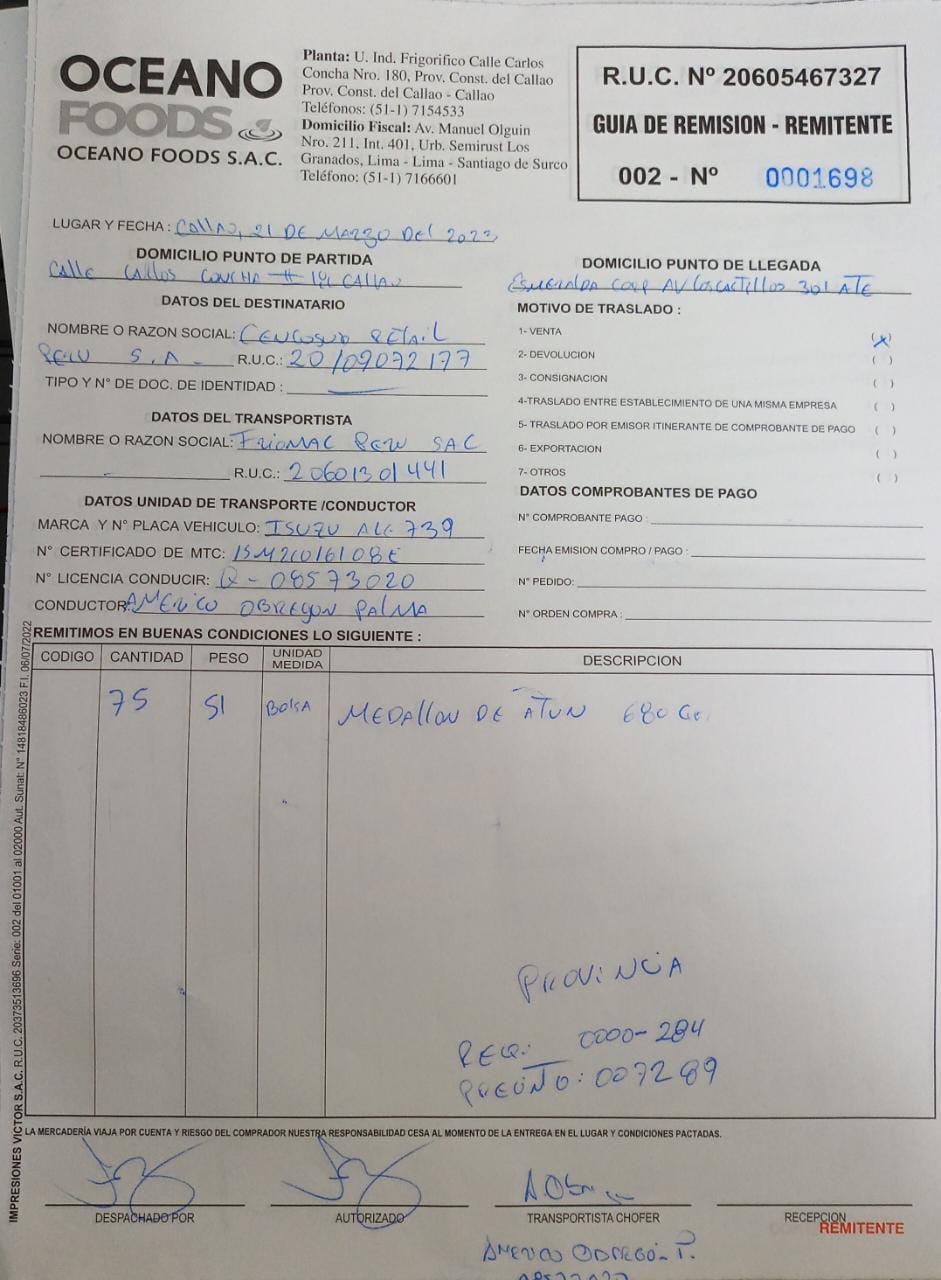 OCEANO
FOODS
OCEANO FOODS S.A.C.
Planta: U. Ind. Frigorifico Calle Carlos
Concha Nro. 180, Prov. Const. del Callao
Prov. Const. del Callao - Callao
Teléfonos: (51-1) 7154533
Domicilio Fiscal: Av. Manuel Olguin
Nro. 211, Int. 401, Urb. Semirust Los
Granados, Lima - Lima - Santiago de Surco
Teléfono: (51-1) 7166601
R.U.C. Nº 20605467327
GUIA DE REMISION - REMITENTE
002 - Nº 0001698
LUGAR Y FECHA : Callao, 21 DE MARZO DEL 2023
DOMICILIO PUNTO DE PARTIDA
Calle Carlos Concha # CALLAO
DOMICILIO PUNTO DE LLEGADA
ESMERALDA CORP AV Los Castillos 301 ATE
DATOS DEL DESTINATARIO
NOMBRE O RAZON SOCIAL: CENCOSUD RETAIL
PERU S.A. R.U.C.: 20109072177
TIPO Y N° DE DOC. DE IDENTIDAD :
MOTIVO DE TRASLADO :
1- VENTA (X)
2- DEVOLUCION ( )
3- CONSIGNACION ( )
4-TRASLADO ENTRE ESTABLECIMIENTO DE UNA MISMA EMPRESA ( )
5- TRASLADO POR EMISOR ITINERANTE DE COMPROBANTE DE PAGO ( )
6- EXPORTACION ( )
7- OTROS ( )
DATOS DEL TRANSPORTISTA
NOMBRE O RAZON SOCIAL: FRIOMAC PERU SAC
R.U.C.: 20601301441
DATOS UNIDAD DE TRANSPORTE /CONDUCTOR
MARCA Y N° PLACA VEHICULO: ISUZU 739
N° CERTIFICADO DE MTC: 15M2016108E
N° LICENCIA CONDUCIR: Q-08573020
CONDUCTOR: AMERICO OBREGON PALMA
DATOS COMPROBANTES DE PAGO
N° COMPROBANTE PAGO :
FECHA EMISION COMPRO / PAGO :
N° PEDIDO:
N° ORDEN COMPRA :
REMITIMOS EN BUENAS CONDICIONES LO SIGUIENTE :
CODIGO CANTIDAD PESO UNIDAD MEDIDA DESCRIPCION
75 51 BOLSA MEDALLON DE ATUN 680 Gr.
PROVINCIA
REQ: 0000-284
PRECINTO: 007289
LA MERCADERÍA VIAJA POR CUENTA Y RIESGO DEL COMPRADOR NUESTRA RESPONSABILIDAD CESA AL MOMENTO DE LA ENTREGA EN EL LUGAR Y CONDICIONES PACTADAS.
DESPACHADO POR
AUTORIZADO
TRANSPORTISTA CHOFER
RECEPCION
REMITENTE
AMERICO OBREGON P.
IMPRESIONES VICTOR S.A.C. R.U.C. 20373513696 Serie: 002 del 01001 al 02000 Aut. Sunat: N° 14818486023 F.I. 06/07/2022